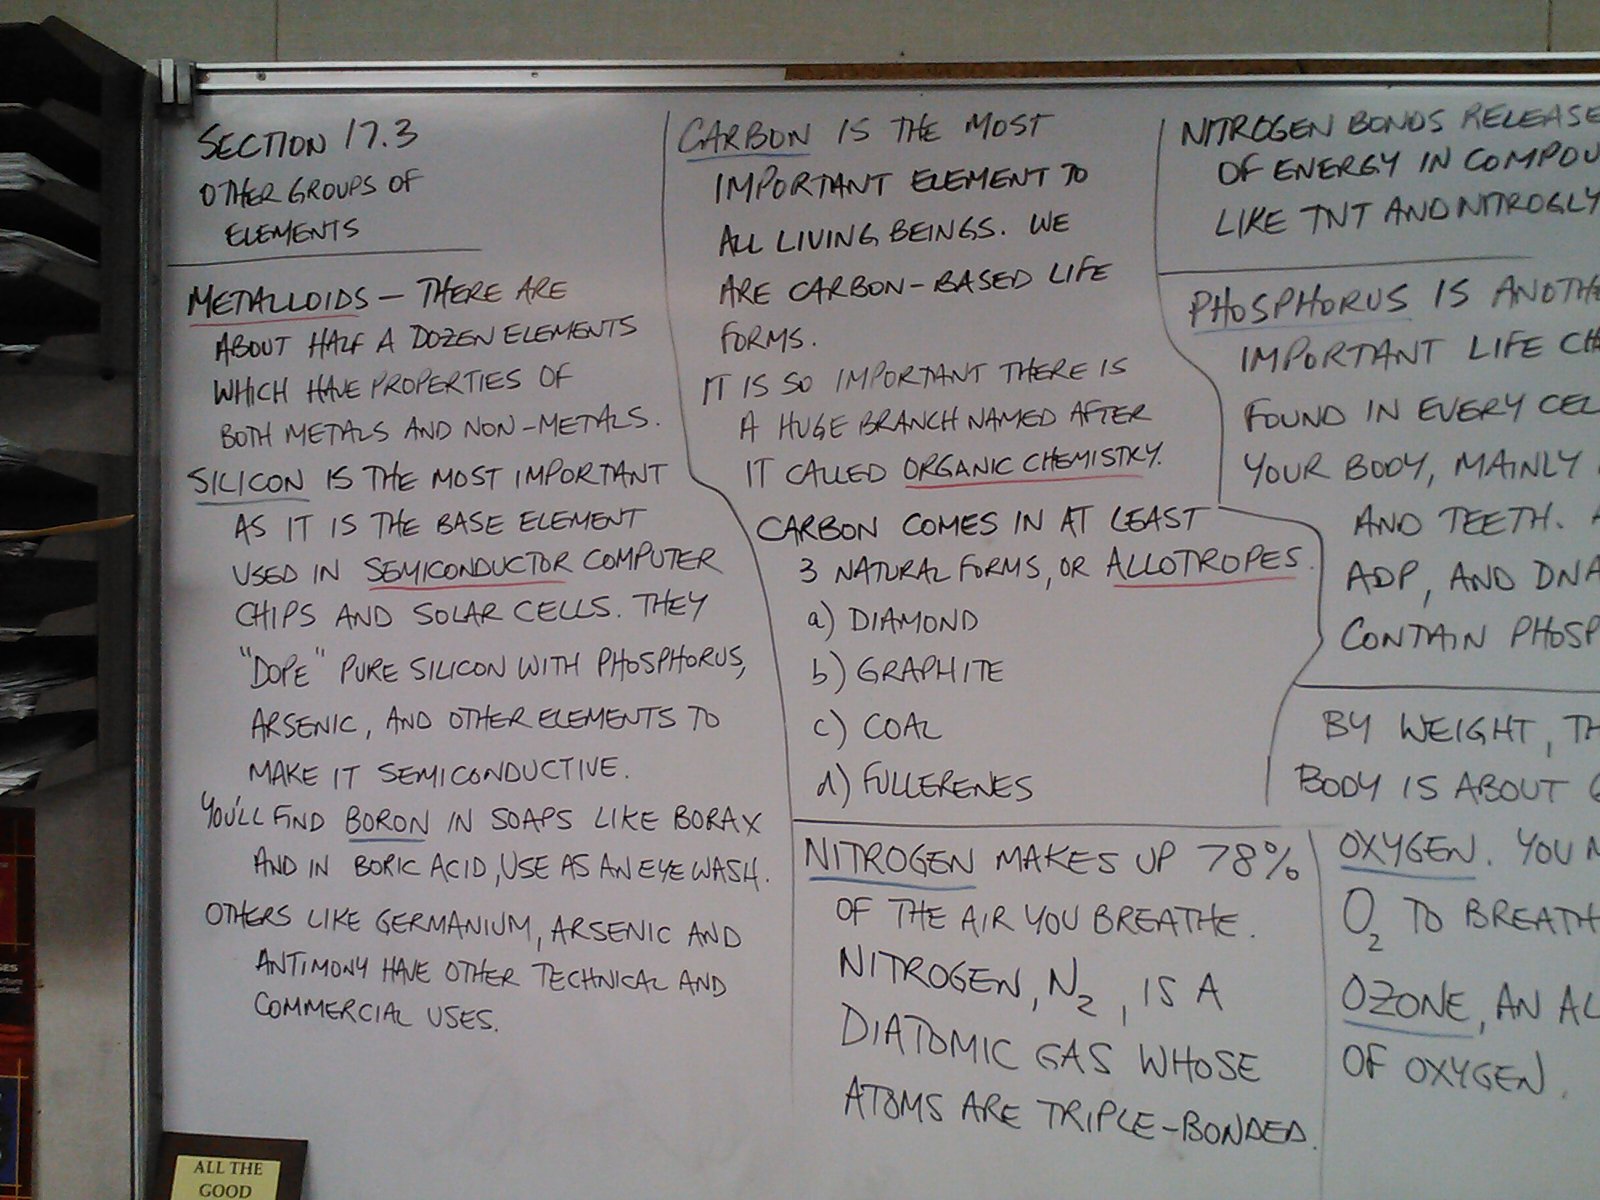 SECTION 17.3
OTHER GROUPS OF
ELEMENTS
METALLOIDS – THERE ARE
ABOUT HALF A DOZEN ELEMENTS
WHICH HAVE PROPERTIES OF
BOTH METALS AND NON-METALS.
SILICON IS THE MOST IMPORTANT
AS IT IS THE BASE ELEMENT
USED IN SEMICONDUCTOR COMPUTER
CHIPS AND SOLAR CELLS. THEY
"DOPE" PURE SILICON WITH PHOSPHORUS,
ARSENIC, AND OTHER ELEMENTS TO
MAKE IT SEMICONDUCTIVE.
YOU'LL FIND BORON IN SOAPS LIKE BORAX
AND IN BORIC ACID, USE AS AN EYE WASH.
OTHERS LIKE GERMANIUM, ARSENIC AND
ANTIMONY HAVE OTHER TECHNICAL AND
COMMERCIAL USES.
CARBON IS THE MOST
IMPORTANT ELEMENT TO
ALL LIVING BEINGS. WE
ARE CARBON-BASED LIFE
FORMS.
IT IS SO IMPORTANT THERE IS
A HUGE BRANCH NAMED AFTER
IT CALLED ORGANIC CHEMISTRY.
CARBON COMES IN AT LEAST
3 NATURAL FORMS, OR ALLOTROPES.
a) DIAMOND
b) GRAPHITE
c) COAL
d) FULLERENES
NITROGEN MAKES UP 78%
OF THE AIR YOU BREATHE.
NITROGEN, N₂, IS A
DIATOMIC GAS WHOSE
ATOMS ARE TRIPLE-BONDED.
NITROGEN BONDS RELEASE
OF ENERGY IN COMPOU
LIKE TNT AND NITROGLY
PHOSPHORUS IS ANOTHE
IMPORTANT LIFE CH
FOUND IN EVERY CEL
YOUR BODY, MAINLY
AND TEETH. A
ADP, AND DNA
CONTAIN PHOSP
BY WEIGHT, TH
BODY IS ABOUT
OXYGEN. YOU N
O₂ TO BREATH
OZONE, AN AL
OF OXYGEN.
ALL THE
GOOD